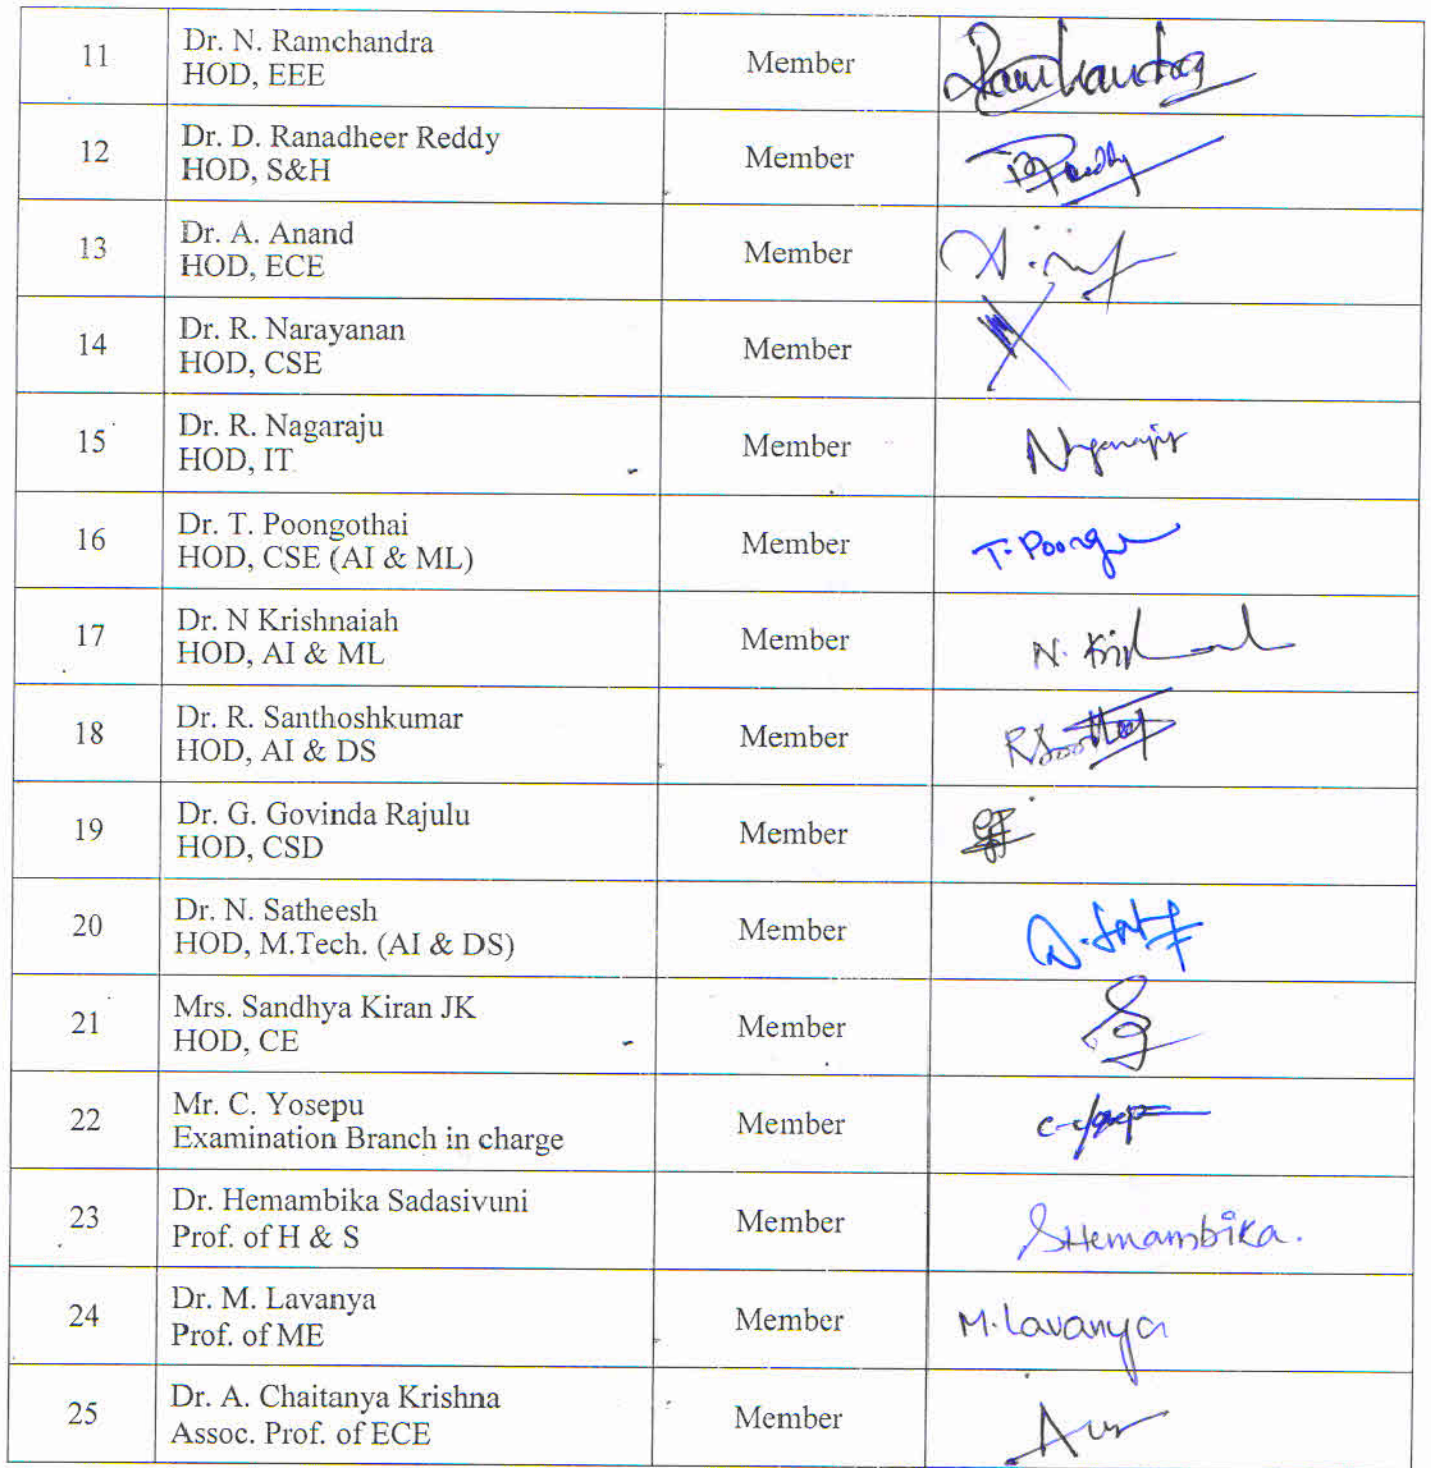 11
Dr. N. Ramchandra
HOD, EEE
Member
Ramchandra
12
Dr. D. Ranadheer Reddy
HOD, S&H
Member
13
Dr. A. Anand
HOD, ECE
Member
14
Dr. R. Narayanan
HOD, CSE
Member
15
Dr. R. Nagaraju
HOD, IT
Member
16
Dr. T. Poongothai
HOD, CSE (AI & ML)
Member
17
Dr. N Krishnaiah
HOD, AI & ML
Member
18
Dr. R. Santhoshkumar
HOD, AI & DS
Member
19
Dr. G. Govinda Rajulu
HOD, CSD
Member
20
Dr. N. Satheesh
HOD, M.Tech. (AI & DS)
Member
21
Mrs. Sandhya Kiran JK
HOD, CE
Member
22
Mr. C. Yosepu
Examination Branch in charge
Member
23
Dr. Hemambika Sadasivuni
Prof. of H & S
Member
SHemambika.
24
Dr. M. Lavanya
Prof. of ME
Member
M. Lavanya
25
Dr. A. Chaitanya Krishna
Assoc. Prof. of ECE
Member